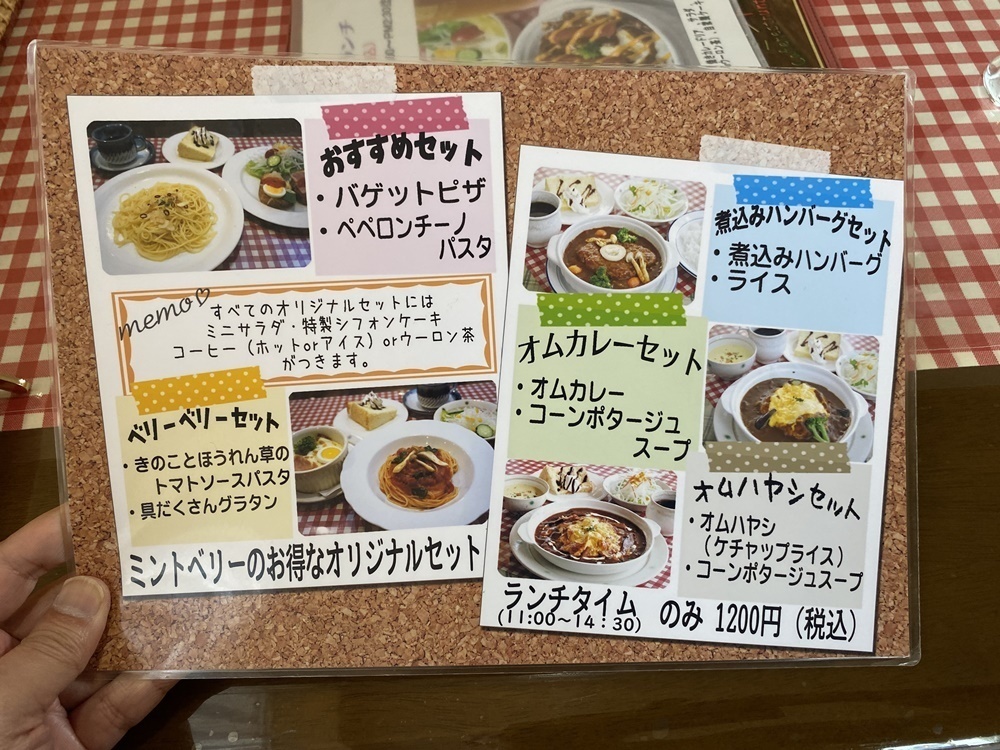 おすすめセット
・バゲットピザ
・ペペロンチーノ
パスタ
memo♡
すべてのオリジナルセットには
ミニサラダ・特製シフォンケーキ
コーヒー(ホットorアイス)orウーロン茶
がつきます。
ベリーベリーセット
・きのことほうれん草の
トマトソースパスタ
・具だくさんグラタン
ミントベリーのお得なオリジナルセット
煮込みハンバーグセット
・煮込みハンバーグ
・ライス
オムカレーセット
・オムカレー
・コーンポタージュ
スープ
オムハヤシセット
・オムハヤシ
(ケチャップライス)
・コーンポタージュスープ
ランチタイム のみ 1200円(税込)
(11:00~14:30)